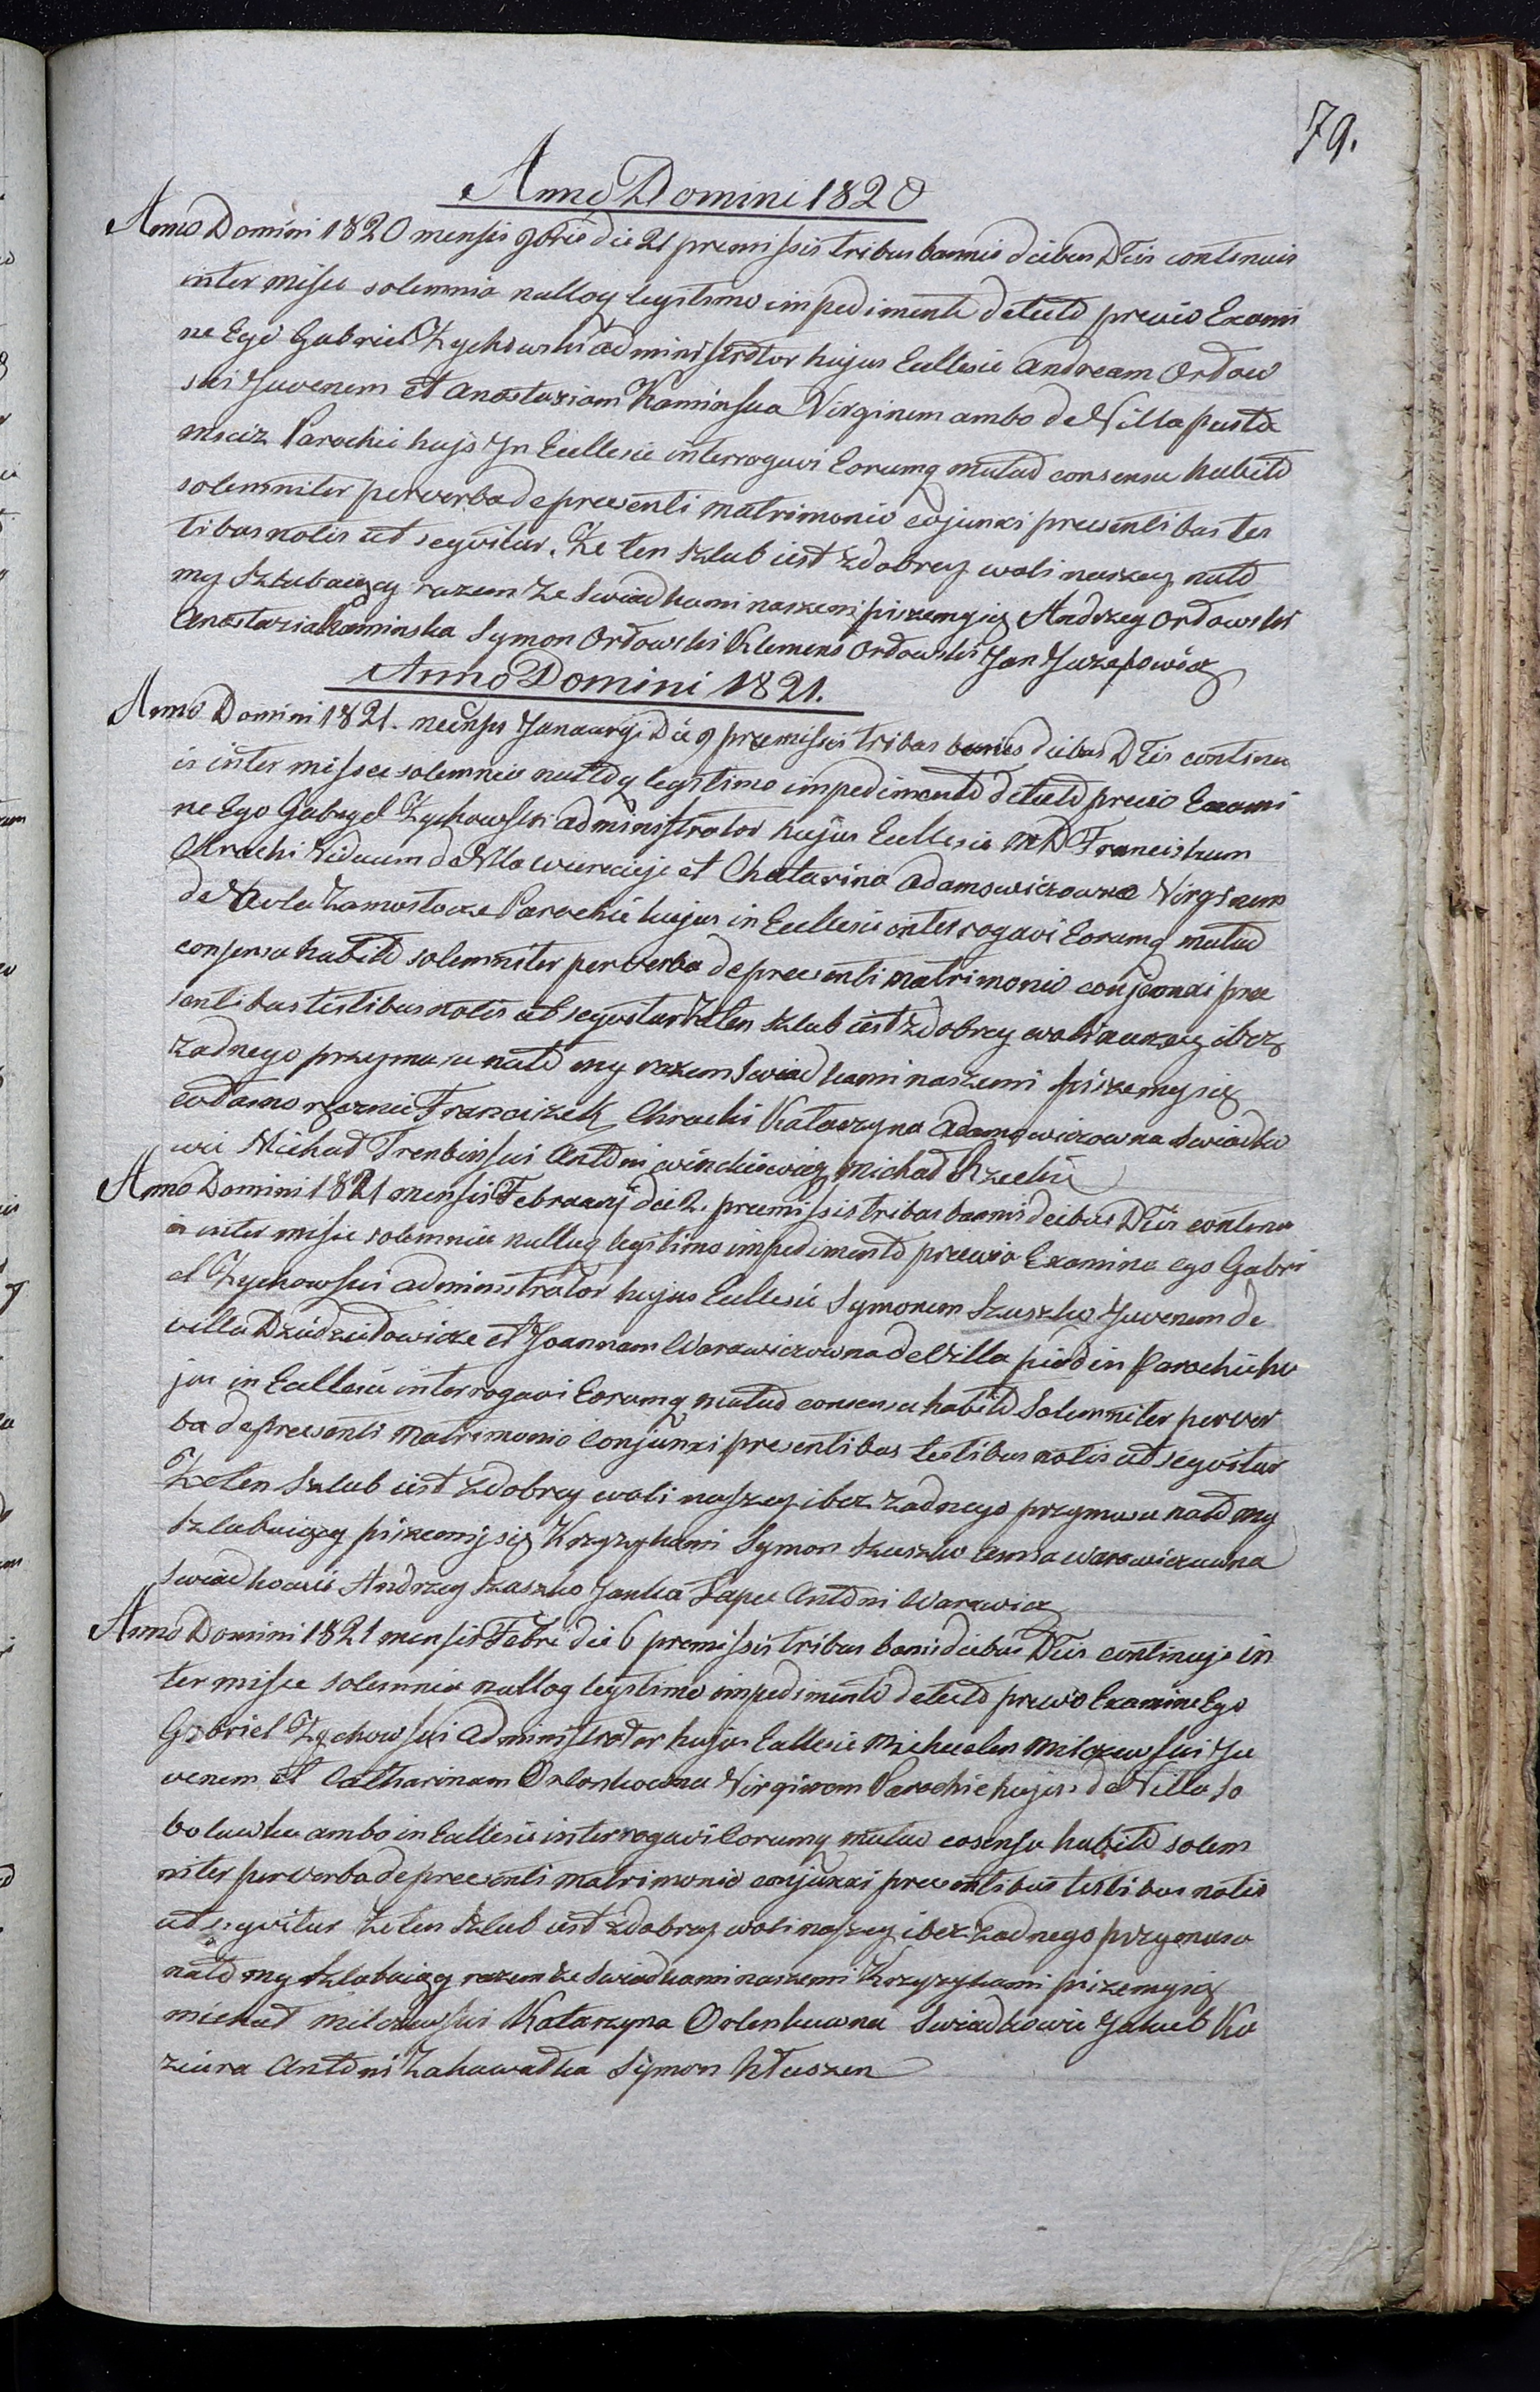 79.
Anno Domini 1820
Anno Domini 1820 mensis 9bris die 21 premissis tribus bannis dcibus Dteis continuis
inter misse solemnia nulloq legitimo impedimento detecto previo Exami
ne Ego Gabriel Zychowski administrator hujus Ecclesie Andream Ordow
ski Juvenem et Anastaziam Kaminska Virginem ambo de Villa pusto
msciz Parochie hujs In Ecclesie interrogavi Eorumq mutuo consensu habito
solemniter perverba depresenti matrimonio cojunxi presentibus tes
tibus notis ut seqvitur. Ze ten szlub iest zdobrey woli naszey nato
my szlubaiący razem ze swiadkami naszemi piszemysię Andrzey Ordowski
Anastazia Kaminska Symon Ordowski Klemens Ordowski Jan Juzefowicz
Anno Domini 1821.
Anno Domini 1821. mensis Januaryi Die 9 premissis tribus banis dcibus Dteis continu
is inter missee solemnia nulloq legitimo impedimento detecto previo Exami
ne Ego Gabryel Zychowski administrator hujus Ecclesie MD Franciskum
Chracki Viduum de Vlla wiereicije et Chatarina Adamowiczowna Virginem
de Zamostocze Parochie hujus in Ecclesie interrogavi Eorumq mutuo
consensu habito solemniter perverba depresenti matrimonio conjunxi pree
sentibus testibus notis ut seqvitur Zeten szlub iest zdobrey woli naszey ibez
zadnego przymusu nato my razem swiadkami naszemi piszemysię
Franciszek Chracki Katarzyna Adamowiczowna swiadko
wie Michał Trenbinski Antoni winckiewicz michał Rzecki
Anno Domini 1821 mensis Februarij die 2. premissis tribus bannis dcibus Dteis continu
is inter misse solemnia nulluq legitimo impedimento preewio Examine ego Gabri
el Zychowski administrator hujus Ecclesie Symonem Szuszko Juvenem de
villa Dziedziłowicze et Joannam Warawiczowna de Villa in Parochie hu
jus in Ecclesie interrogavi Eorumq mutuo consensu habito Solemniter perver
ba depresenti Matrimonio Conjunxi presentibus testibus notis ut seqvitur
Zeten szlub iest zdobrey woli naszey ibez zadnego przymusu nato my
szlubuiący piszemysię Krzyzykami Symon szuszko Anna warawiczuwna
swiadkowie Andrzey szuszko Janka Łapec Antoni Warawicz
Anno Domini 1821 mensis Febri die 6 premissis tribus banis dcibus Dteis continujs in
ter misse solemnia nulloq legitimo impedimento detecto previo Examine Ego
Gabriel Zychowski administrator hujus Ecllesie Michaelem Milczewski Ju
venem et Catharinam Orlonkowna Virginem Parochie hujus de Villa so
bolewka ambo in Ecllesie interrogavi Eorumq mutuo cosensu habito solem
niter perverba depresenti matrimonio conjunxi presentibus testibus notis
ut seqvitur Zeten szlub iest zdobrey woli naszey ibez zadnego przymusu
nato my szlubuiący razem ze swiadkami naszemi Krzyzykami piszemysię
michał milczewski Katarzyna Orlenkuwna swiadkowie Jakub Ko
ziura Antoni Zahawałka Symon Kłuszen